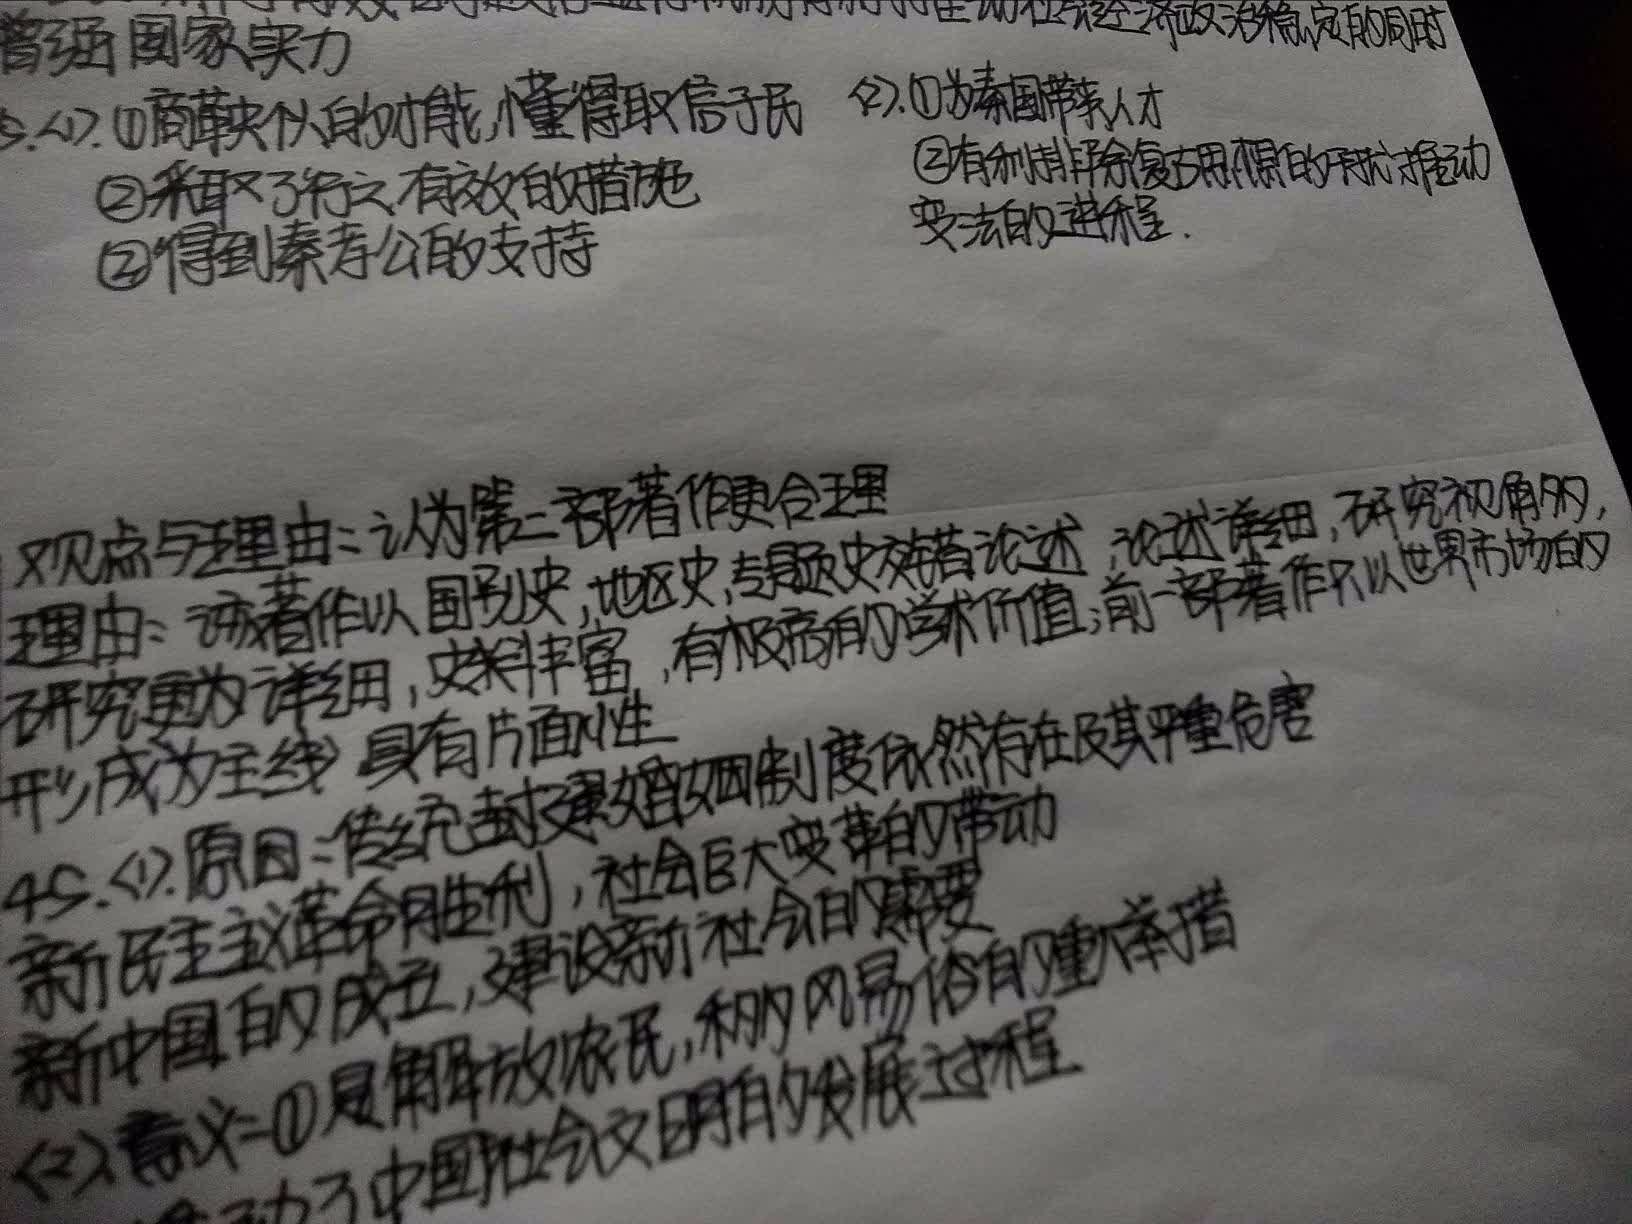 在推动社会经济政治稳定的同时
增强国家实力
(1).①商鞅个人的才能,懂得取信于民
②采取了行之有效的措施
②得到秦孝公的支持
(2).①为秦国带来人才
②有利排除复古思想的干扰,推动
变法的进程.
观点与理由:认为第二部著作更合理
理由:该著作以国别史,地区史,专题史来着论述,论述详细,研究视角多,
研究更为详细,史料丰富,有极高的学术价值;前一部著作只以世界市场的
形成为主线,具有片面性
45.(1).原因:传统封建婚姻制度依然存在及其严重危害
新民主主义革命胜利,社会巨大变革的带动
新中国的成立,建设新社会的需要
(2)意义:①是解放农民,移风易俗的重大举措
推动了中国社会文明的发展过程